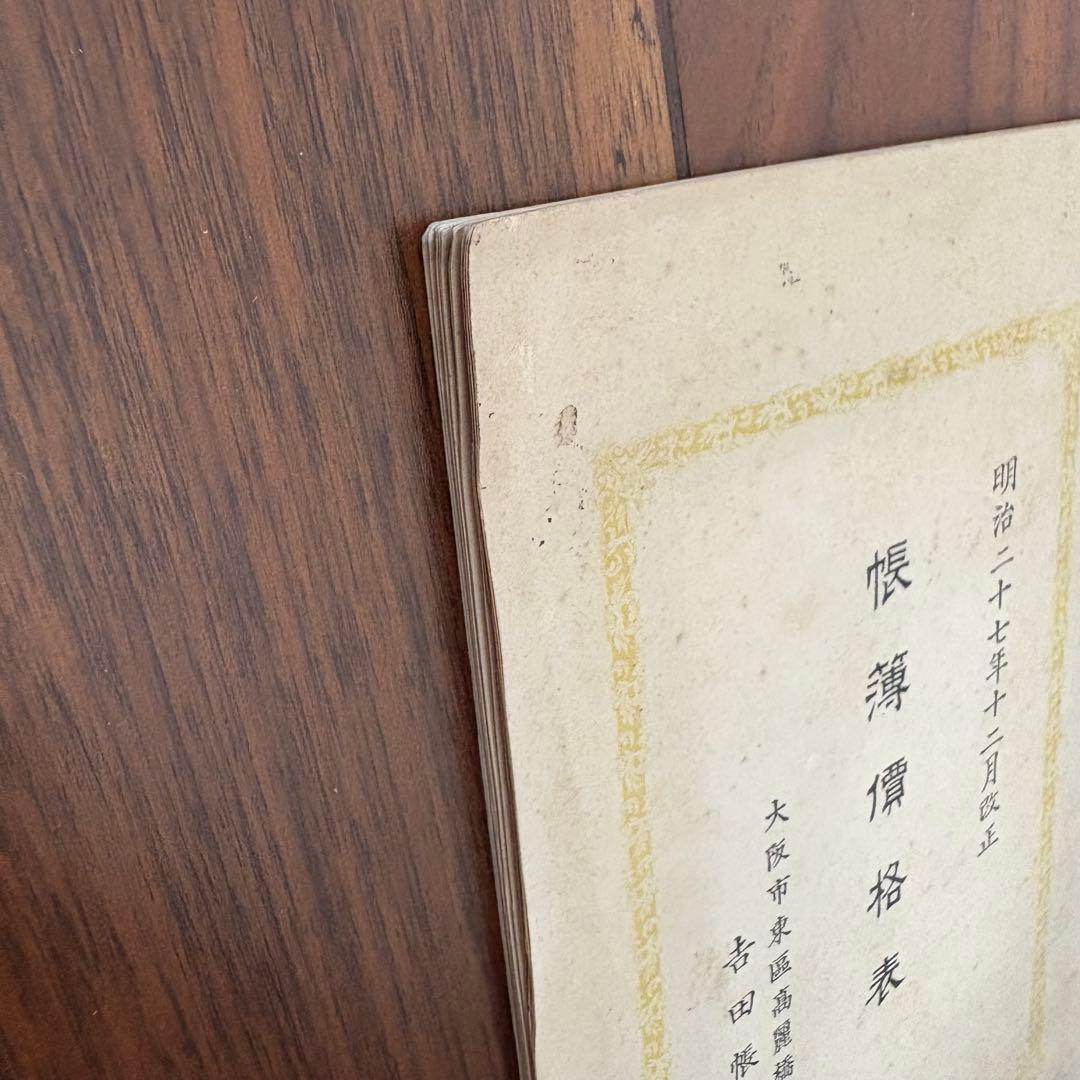 明治二十七年十二月改正
帳薄價格表
大阪市東區高麗橋
吉田帳